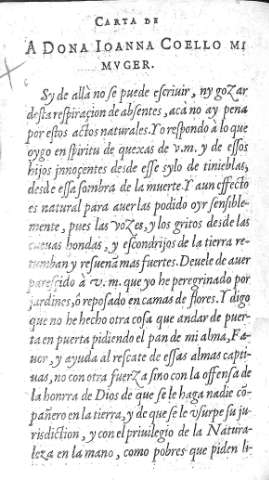 CARTA DE
A DONA IOANNA COELLO MI
MVGER.
Sy de allà no se puede escriuir, ny goZar
desta respiraçion de absentes, acà no ay pena
por estos actos naturales. Yo respondo à lo que
oygo en spiritu de quexas de v.m. y de essos
hijos jnnoçentes desde esse sylo de tinieblas,
desde essa sombra de la muerte. Y aun effecto
es natural para auerlas podido oyr sensible-
mente, pues las voZes, y los gritos desde las
cueuas hondas, y escondrijos de la tierra re-
tumban y resuenã mas fuertes. Deuele de auer
paresçido à v.m. que yo he peregrinado por
jardines, ò reposado en camas de flores. Y digo
que no he hecho otra cosa que andar de puer-
ta en puerta pidiendo el pan de mi alma, Fa-
uor, y ayuda al rescate de essas almas capti-
uas, no con otra fuerZa sino con la offensa de
la honrra de Dios de que se le haga nadie cõ-
pañero en la tierra, y de que se le vsurpe su ju-
risdiction, y con el priuilegio de la Natura-
leza en la mano, como pobres que piden li-